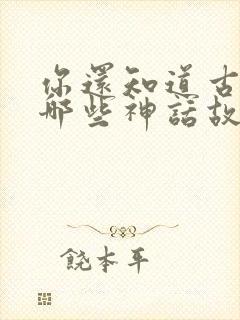 你還知道古
那些神話故
饒本平